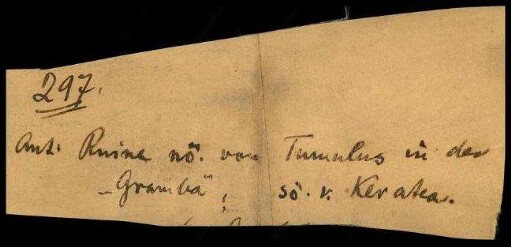 297.
Ant. Ruine nö. von Tumulus in der
Grambä, sö. v. Keratea.